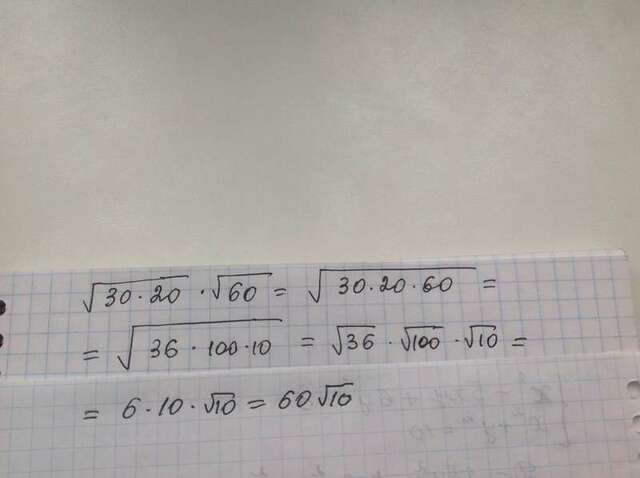 √30·20 · √60 = √30·20·60 =
= √36·100·10 = √36 · √100 · √10 =
= 6·10·√10 = 60√10